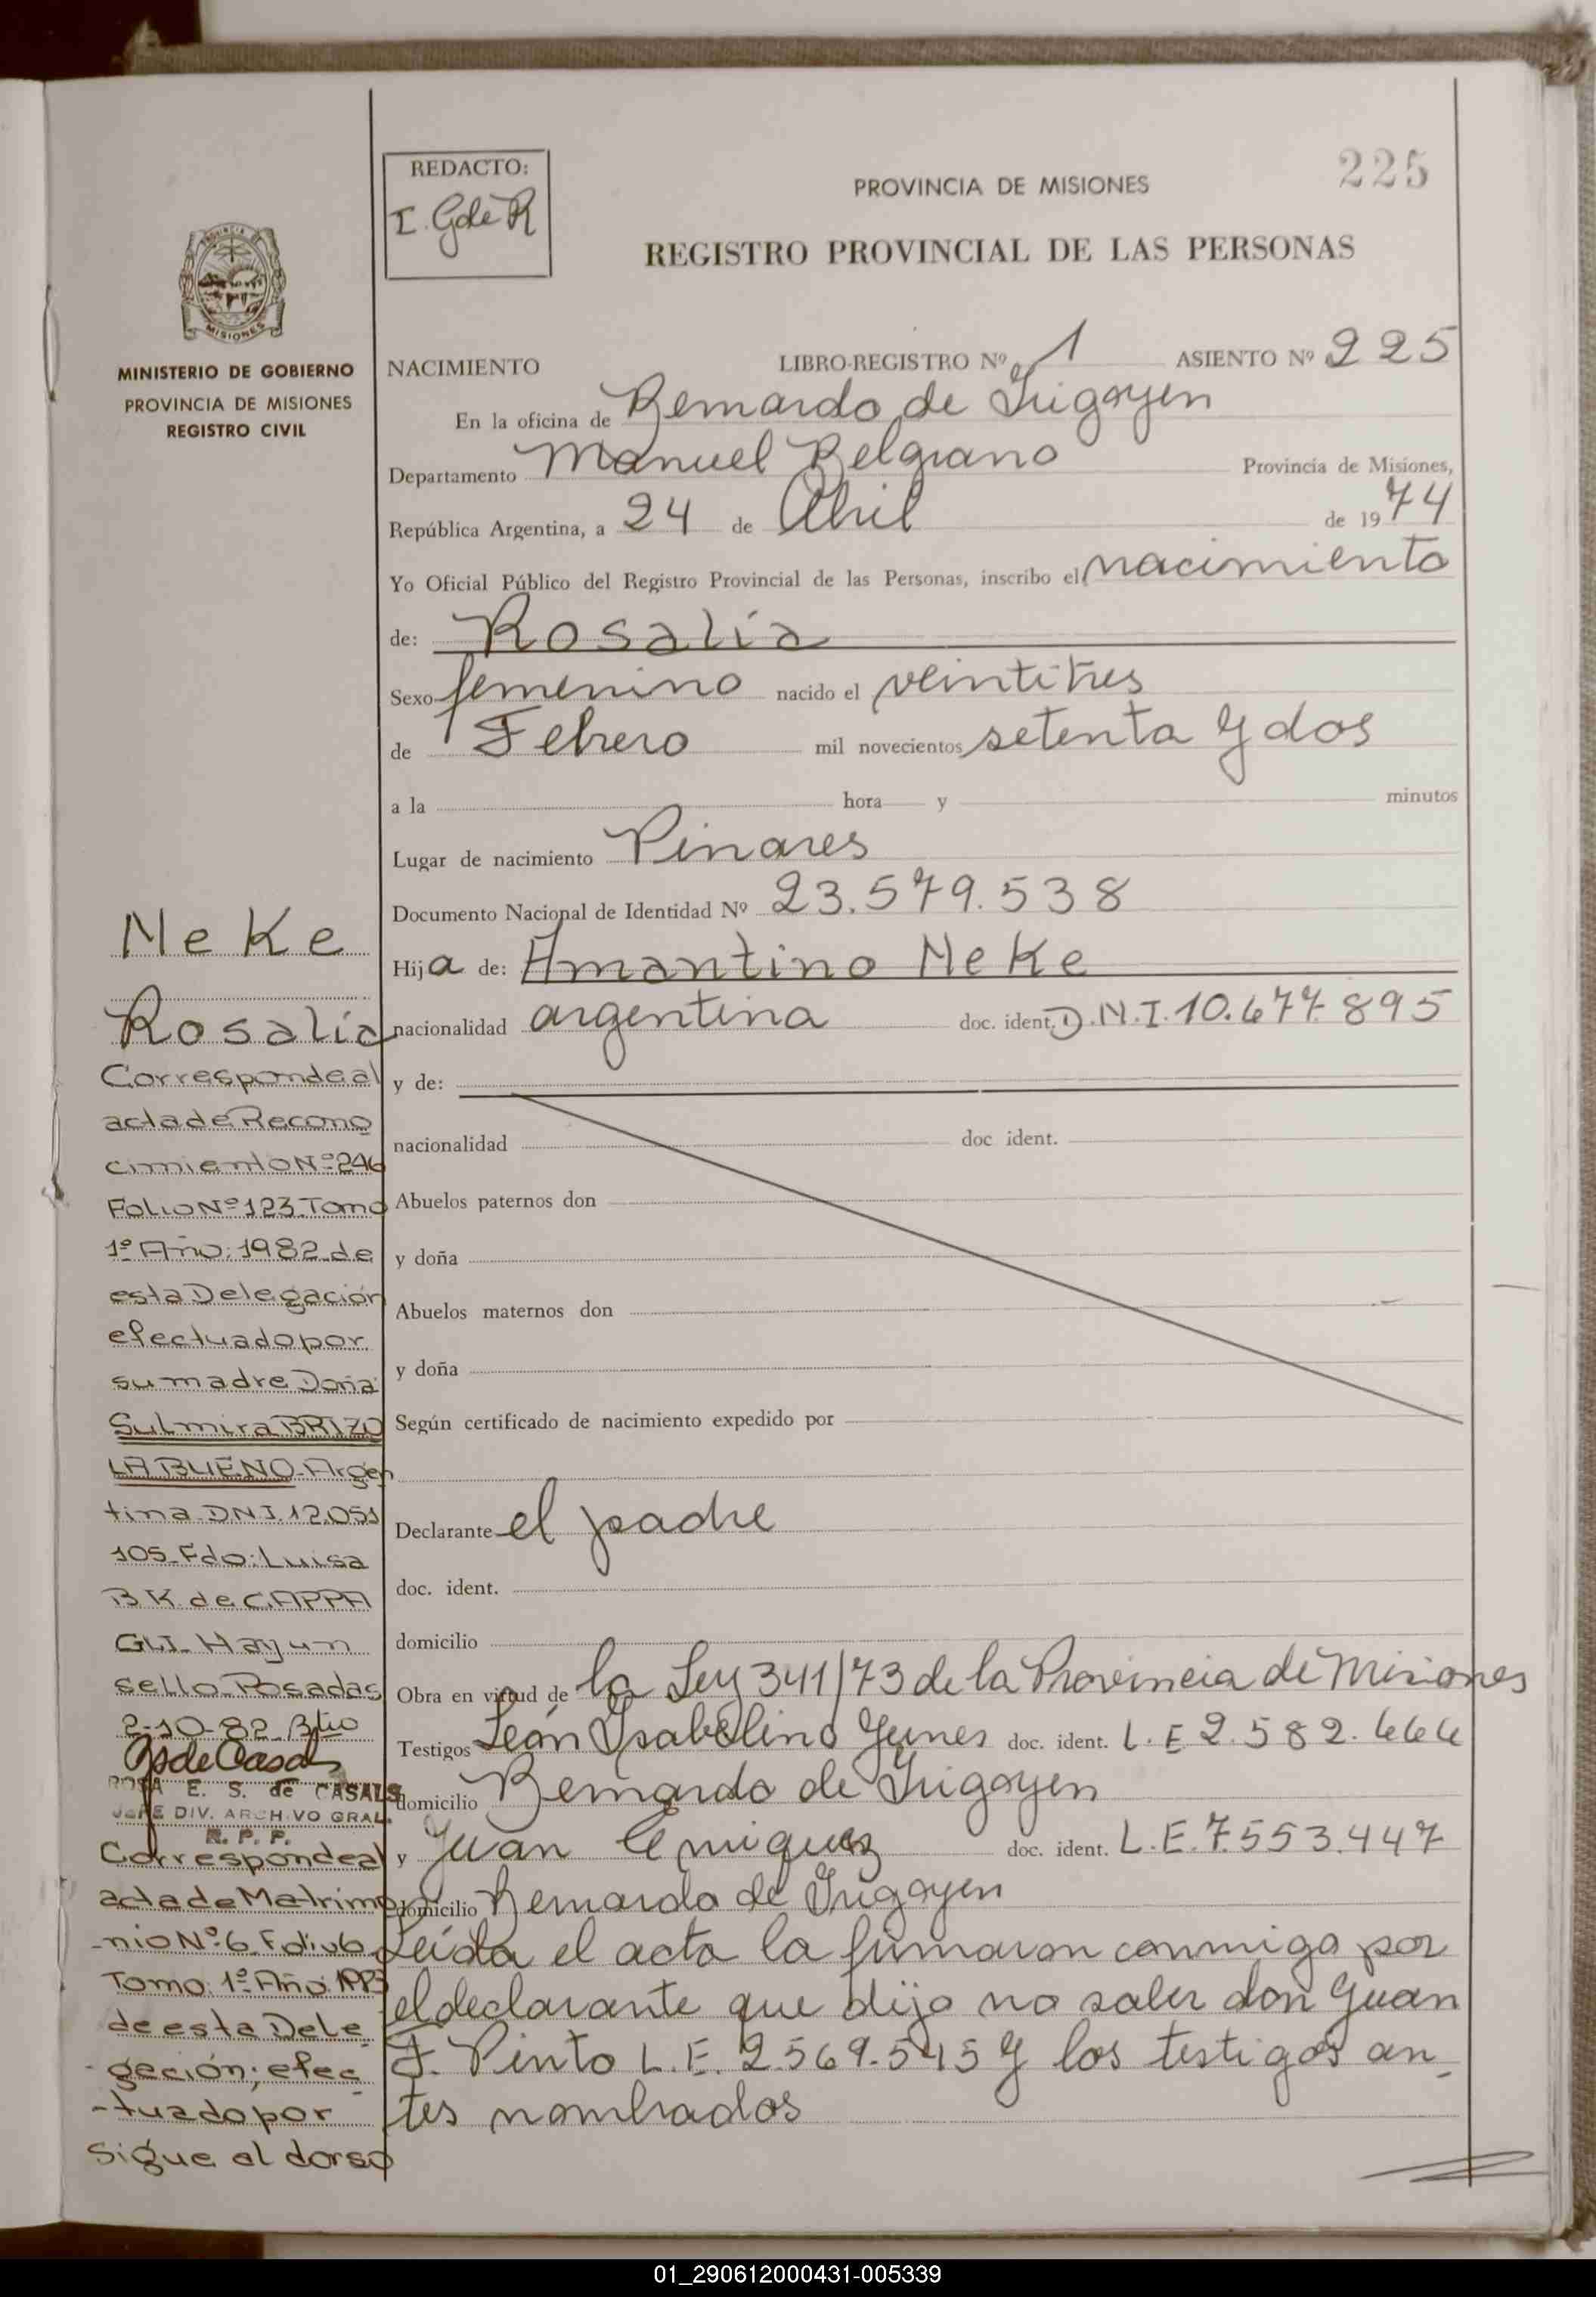 225
REDACTO:
I. G de R
PROVINCIA DE MISIONES
REGISTRO PROVINCIAL DE LAS PERSONAS
MISIONES
MINISTERIO DE GOBIERNO
PROVINCIA DE MISIONES
REGISTRO CIVIL
NACIMIENTO LIBRO-REGISTRO Nº 1 ASIENTO Nº 225
En la oficina de Bernardo de Irigoyen
Departamento Manuel Belgrano Provincia de Misiones,
República Argentina, a 24 de Abril de 1974
Yo Oficial Público del Registro Provincial de las Personas, inscribo el nacimiento
de: Rosalía
Sexo femenino nacido el veintitres
de Febrero mil novecientos setenta y dos
a la hora y minutos
Lugar de nacimiento Pinares
Documento Nacional de Identidad Nº 23.579.538
Hija de: Amantino Neke
nacionalidad argentina doc. ident. D.N.I. 10.677.895
y de:
nacionalidad doc ident.
Abuelos paternos don
y doña
Abuelos maternos don
y doña
Según certificado de nacimiento expedido por
Declarante el padre
doc. ident.
domicilio
Obra en virtud de la Ley 341/73 de la Provincia de Misiones
Testigos León Ysabelino Yunes doc. ident. L.E 2.582.666
domicilio Bernardo de Irigoyen
y Juan Enriquez doc. ident. L.E. 7.553.447
domicilio Bernardo de Irigoyen
Leída el acta la firmaron conmigo por
el declarante que dijo no saber don Juan
F. Pinto L.E. 2.569.545 y los testigos an
tes nombrados
Neke
Rosalía
Corresponde al
acta de Recono
cimiento Nº 246
Folio Nº 123 Tomo
1º Año: 1982 de
esta Delegación
efectuado por
su madre Doña
Sulmira BRIZO
LA BUENO-Argen
tina DNI. 12.051
105-Fdo: Luisa
B K de CAPPA
GLI- Hay un
sello-Posadas
2-10-82
ROSA E. S. de CASALS
JEFE DIV. ARCHIVO GRAL.
R. P. P.
Corresponde al
acta de Matrimo
-nio Nº 6 Folio 6
Tomo: 1º Año 1993
de esta Dele
-gación; efec
-tuado por
Sigue al dorso
01_290612000431-005339